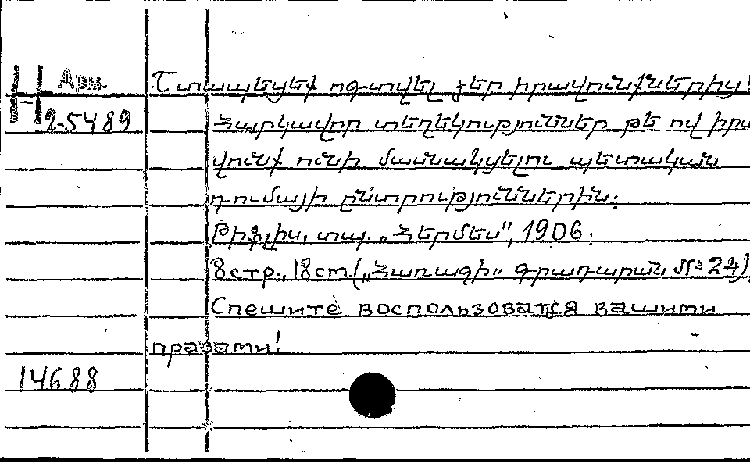 Арм.
2-5489
Շտապեցեք օգտվել ձեր իրավունքներից!
Հարկավոր տեղեկություններ թե ով իրա
վունք ունի մասնակցելու պետական
դումայի ընտրություններին:
Թիֆլիս, տպ. „Հերմես", 1906.
8стр., 18cm („Հառաջի" գրադարան, №24)
Спешите воспользоватся вашими
правами!
14688